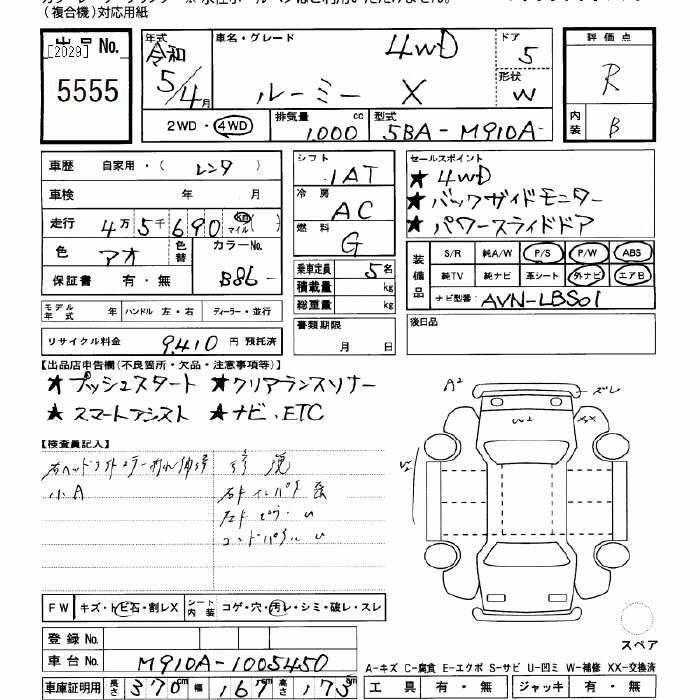 （複合機）対応用紙
出品 No.
[2029]
5555
年式 令和 5/4月
車名・グレード 4WD
ルーミー X
ドア 5
形状 W
評価点 R
内装 B
2WD・4WD
排気量 1,000 cc
型式 5BA-M910A-
車歴 自家用・（レンタ）
車検 年 月
走行 4万5千690 km マイル（ ）
色 アオ 色替 カラーNo. B86-
保証書 有・無
モデル年式 年 ハンドル 左・右 ディーラー・並行
リサイクル料金 9,410 円 預託済
シフト IAT
冷房 AC
燃料 G
乗車定員 5名
積載量 kg
総重量 kg
書類期限 月 日
セールスポイント
★4WD
★バックサイドモニター
★パワースライドドア
装備品 S/R 純A/W P/S P/W ABS
純TV 純ナビ 革シート 外ナビ エアB
ナビ型番: AVN-LBS01
後日品
【出品店申告欄(不良箇所・欠品・注意事項等)】
★プッシュスタート ★クリアランスソナー
★スマートアシスト ★ナビ、ETC
【検査員記入】
小A
FW キズ・トビ石・割レX シート内装 コゲ・穴・汚レ・シミ・破レ・スレ
登録 No.
車台 No. M910A-1005450
車庫証明用 長さ 370cm 幅 167cm 高さ 173cm
A² ズレ
W² XX
スペア
A-キズ C-腐食 E-エクボ S-サビ U-凹ミ W-補修 XX-交換済
工具 有・無 ジャッキ 有・無